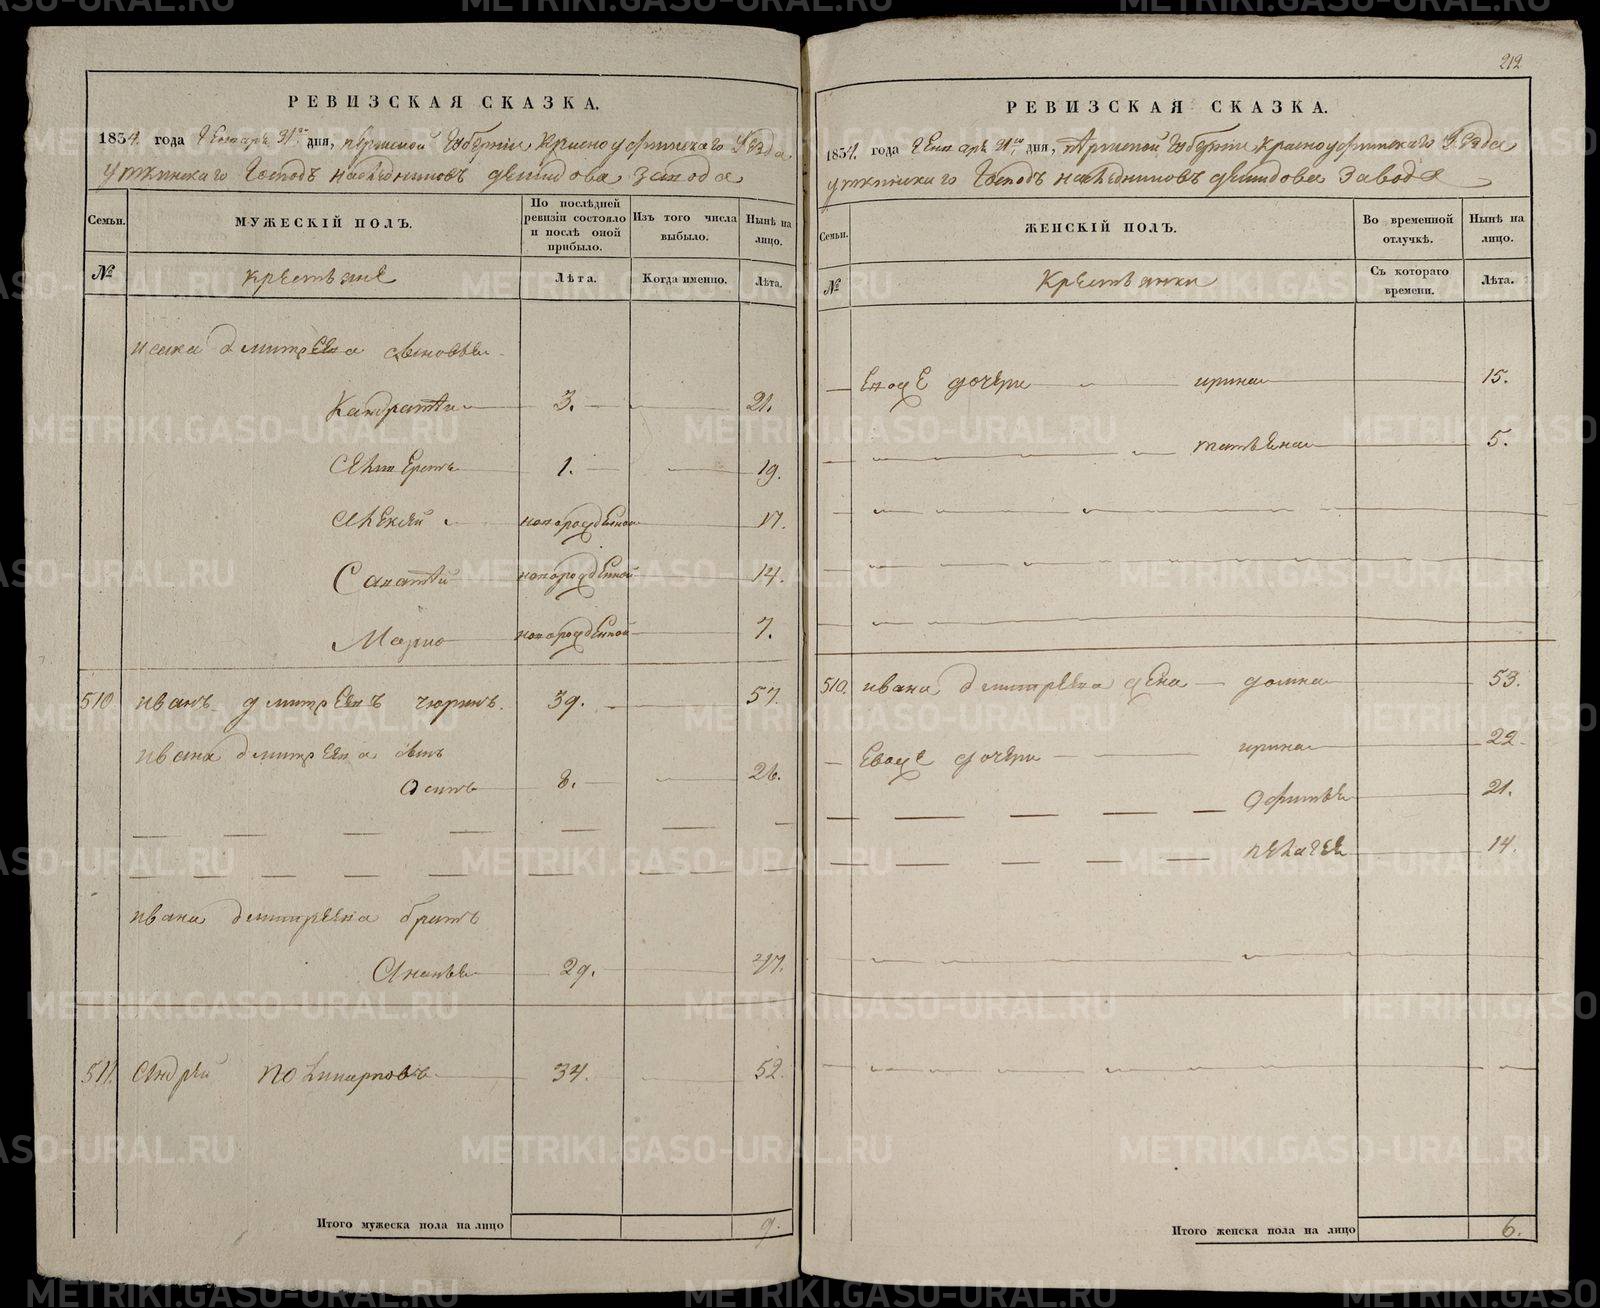 РЕВИЗСКАЯ СКАЗКА.
1834. года Генваря 31го дня, Пермской Губерніи Красноуфимскаго Уѣзда
Уткинскаго Господъ наслѣдниковъ демидова завода
Семьи.
МУЖЕСКІЙ ПОЛЪ.
По послѣдней ревизіи состояло и послѣ оной прибыло.
Изъ того числа выбыло.
Нынѣ на лицо.
№
крестьяне
Лѣта.
Когда именно.
Лѣта.
исака дмитрева сыновья
Кандратей 3. 21.
Селиверстъ 1. 19.
Алексей новорожденной 17.
Саватей новорожденной 14.
Марко новорожденной 7.
510 иванъ дмитревъ чюринъ. 39. 57.
ивана дмитрева сынъ
Осипъ 8. 26.
ивана дмитрева братъ
Ананья 29. 47.
511. Андрей поликарповъ 34. 52.
Итого мужеска пола на лицо 9.
212
РЕВИЗСКАЯ СКАЗКА.
1834. года Генваря 31го дня, Пермской Губерніи Красноуфимскаго Уѣзда
уткинскаго Господъ наслѣдниковъ демидова завода
Семьи.
ЖЕНСКІЙ ПОЛЪ.
Во временной отлучкѣ.
Нынѣ на лицо.
№
Крестьянки
Съ котораго времени.
Лѣта.
Евоже дочери ирина 15.
татьяна 5.
510. ивана дмитрева жена домна 53.
Евоже дочери ирина 22.
Офимья 21.
пелагея 14.
Итого женска пола на лицо 6.
METRIKI.GASO-URAL.RU